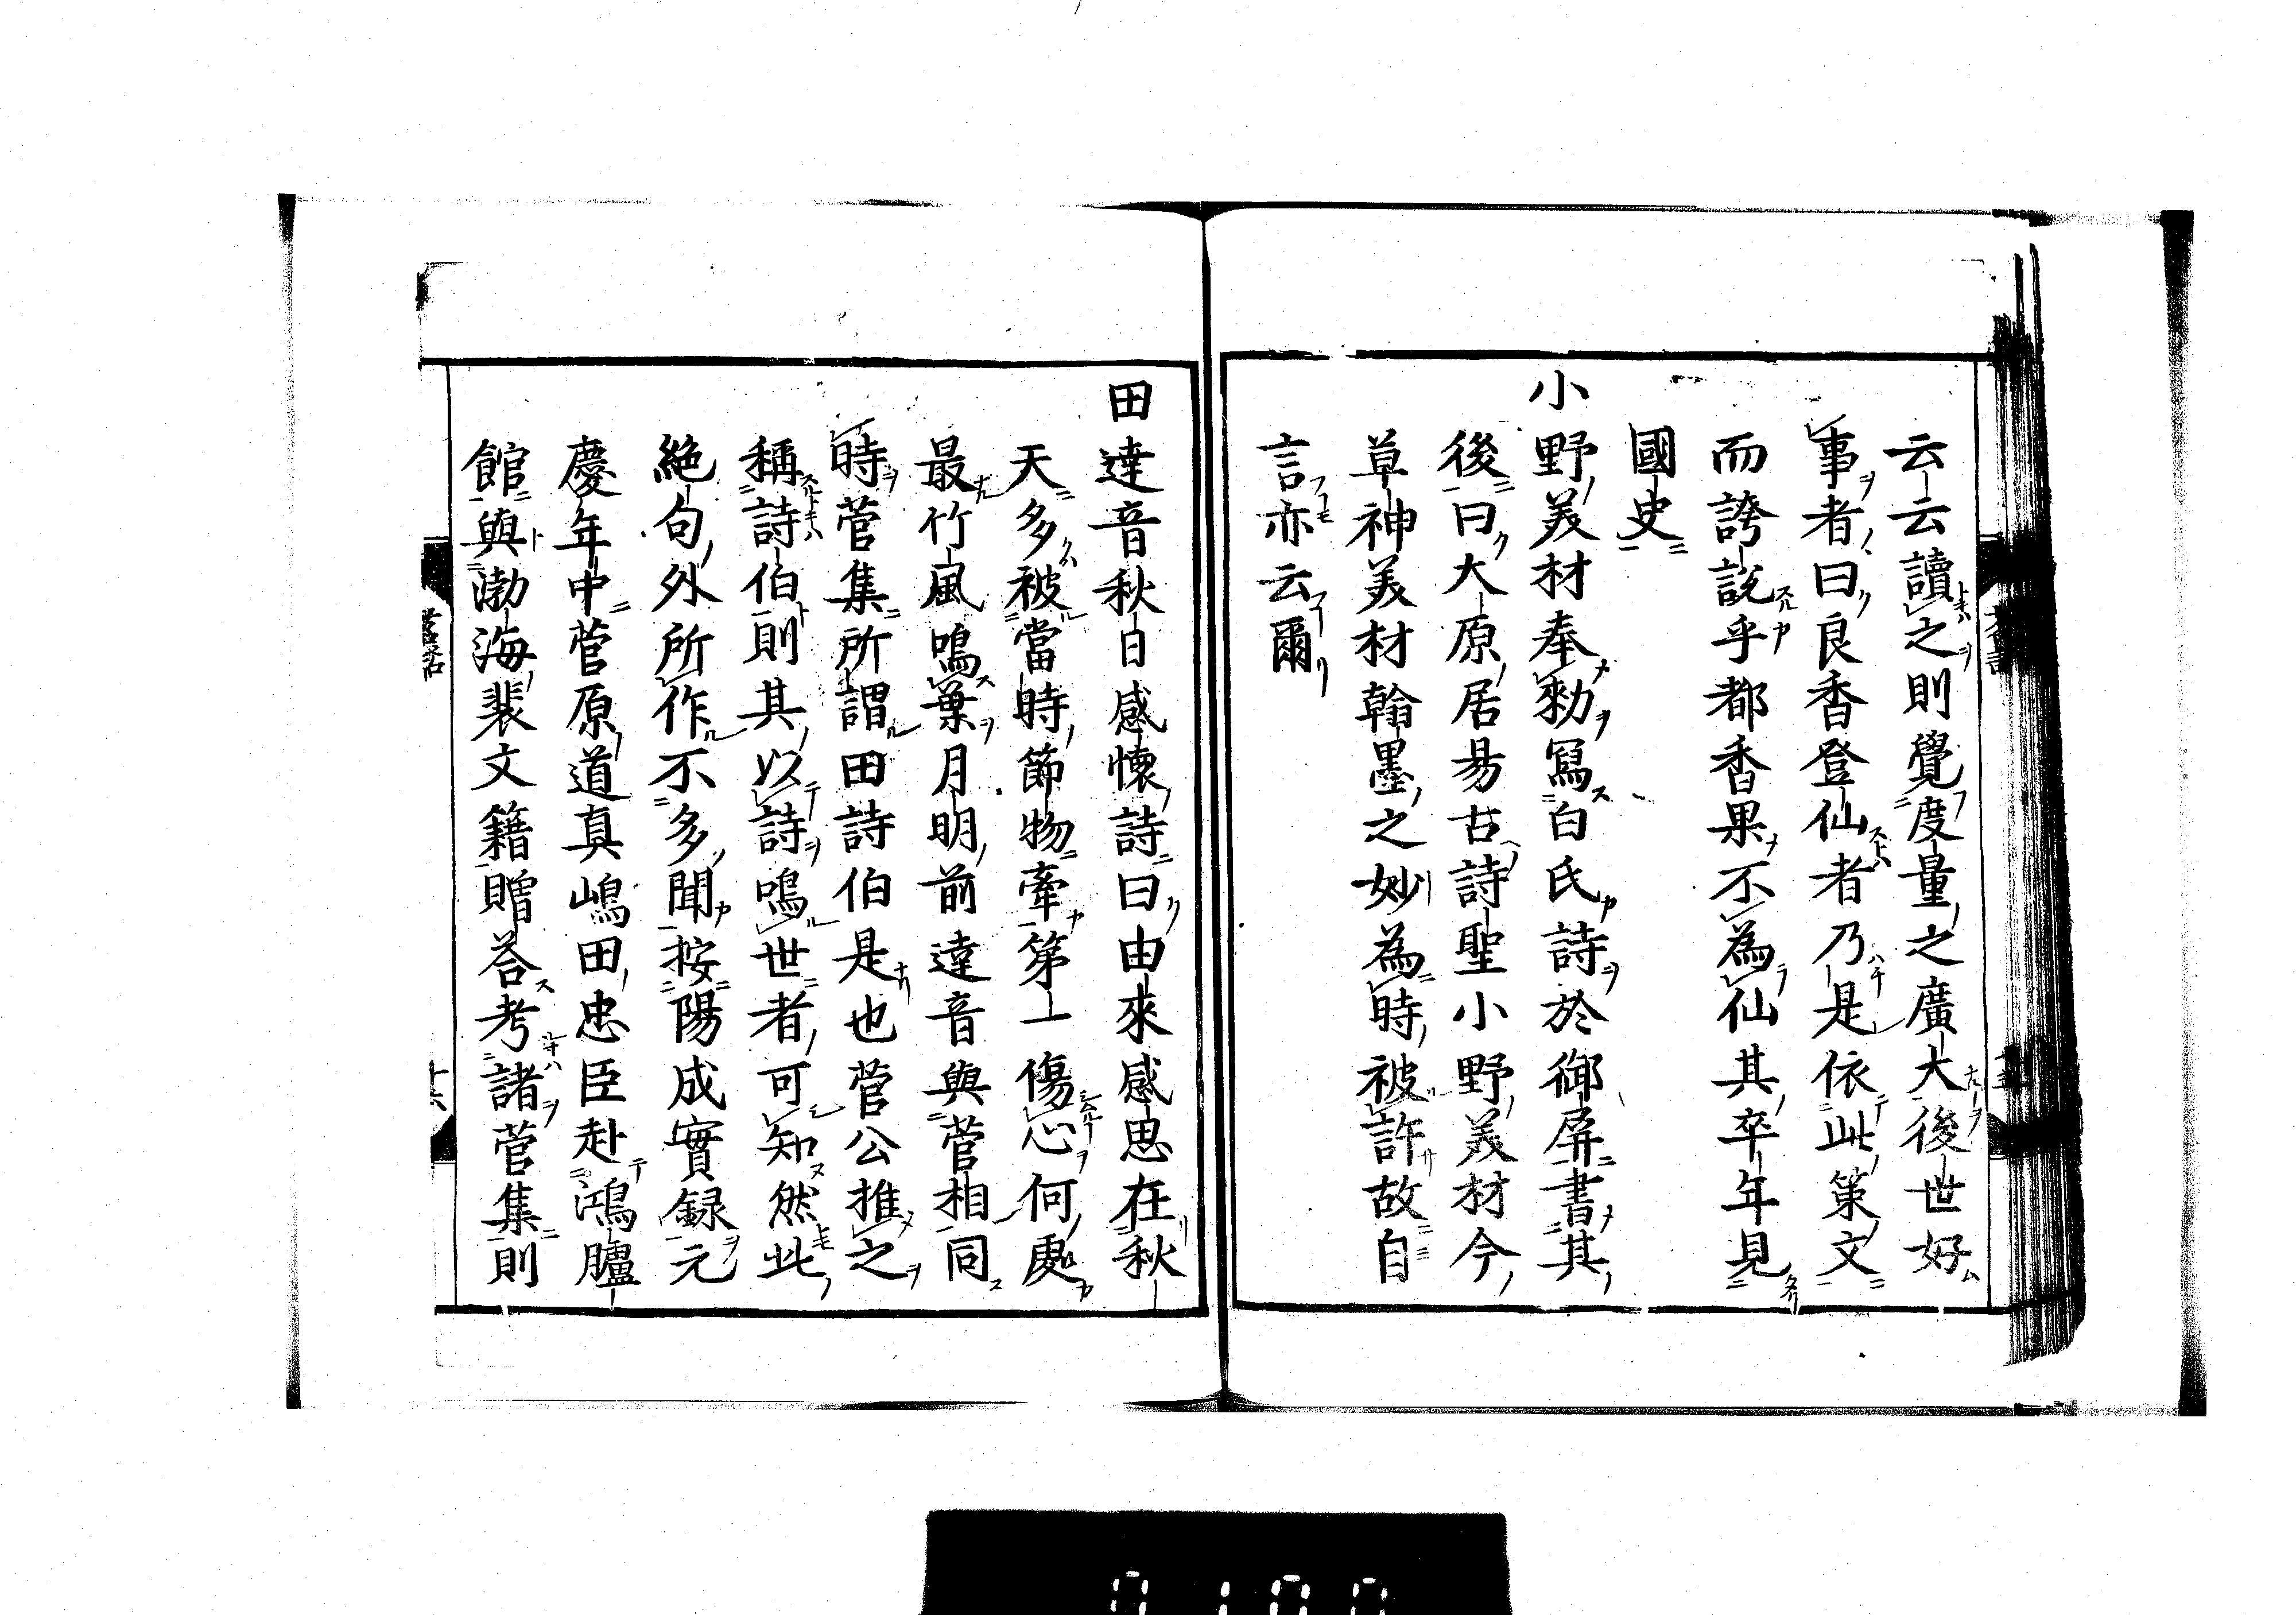 云云讀之則覺度量之廣大後世好
事者曰良香登仙者乃是依此策文
而誇說乎都香果不為仙其卒年見
國史
小野美材奉勅寫白氏詩於御屏書其
後曰大原居易古詩聖小野美材今
草神美材翰墨之妙為時被許故自
言亦云爾
田達音秋日感懷詩曰由來感思在秋
天多被當時節物牽第一傷心何處
最竹風鳴葉月明前達音與菅相同
時菅集所謂田詩伯是也菅公推之
稱詩伯則其以詩鳴世者可知然此
絕句外所作不多聞按陽成實録元
慶年中菅原道真嶋田忠臣赴鴻臚
館與渤海裴文籍贈荅考諸菅集則
0100